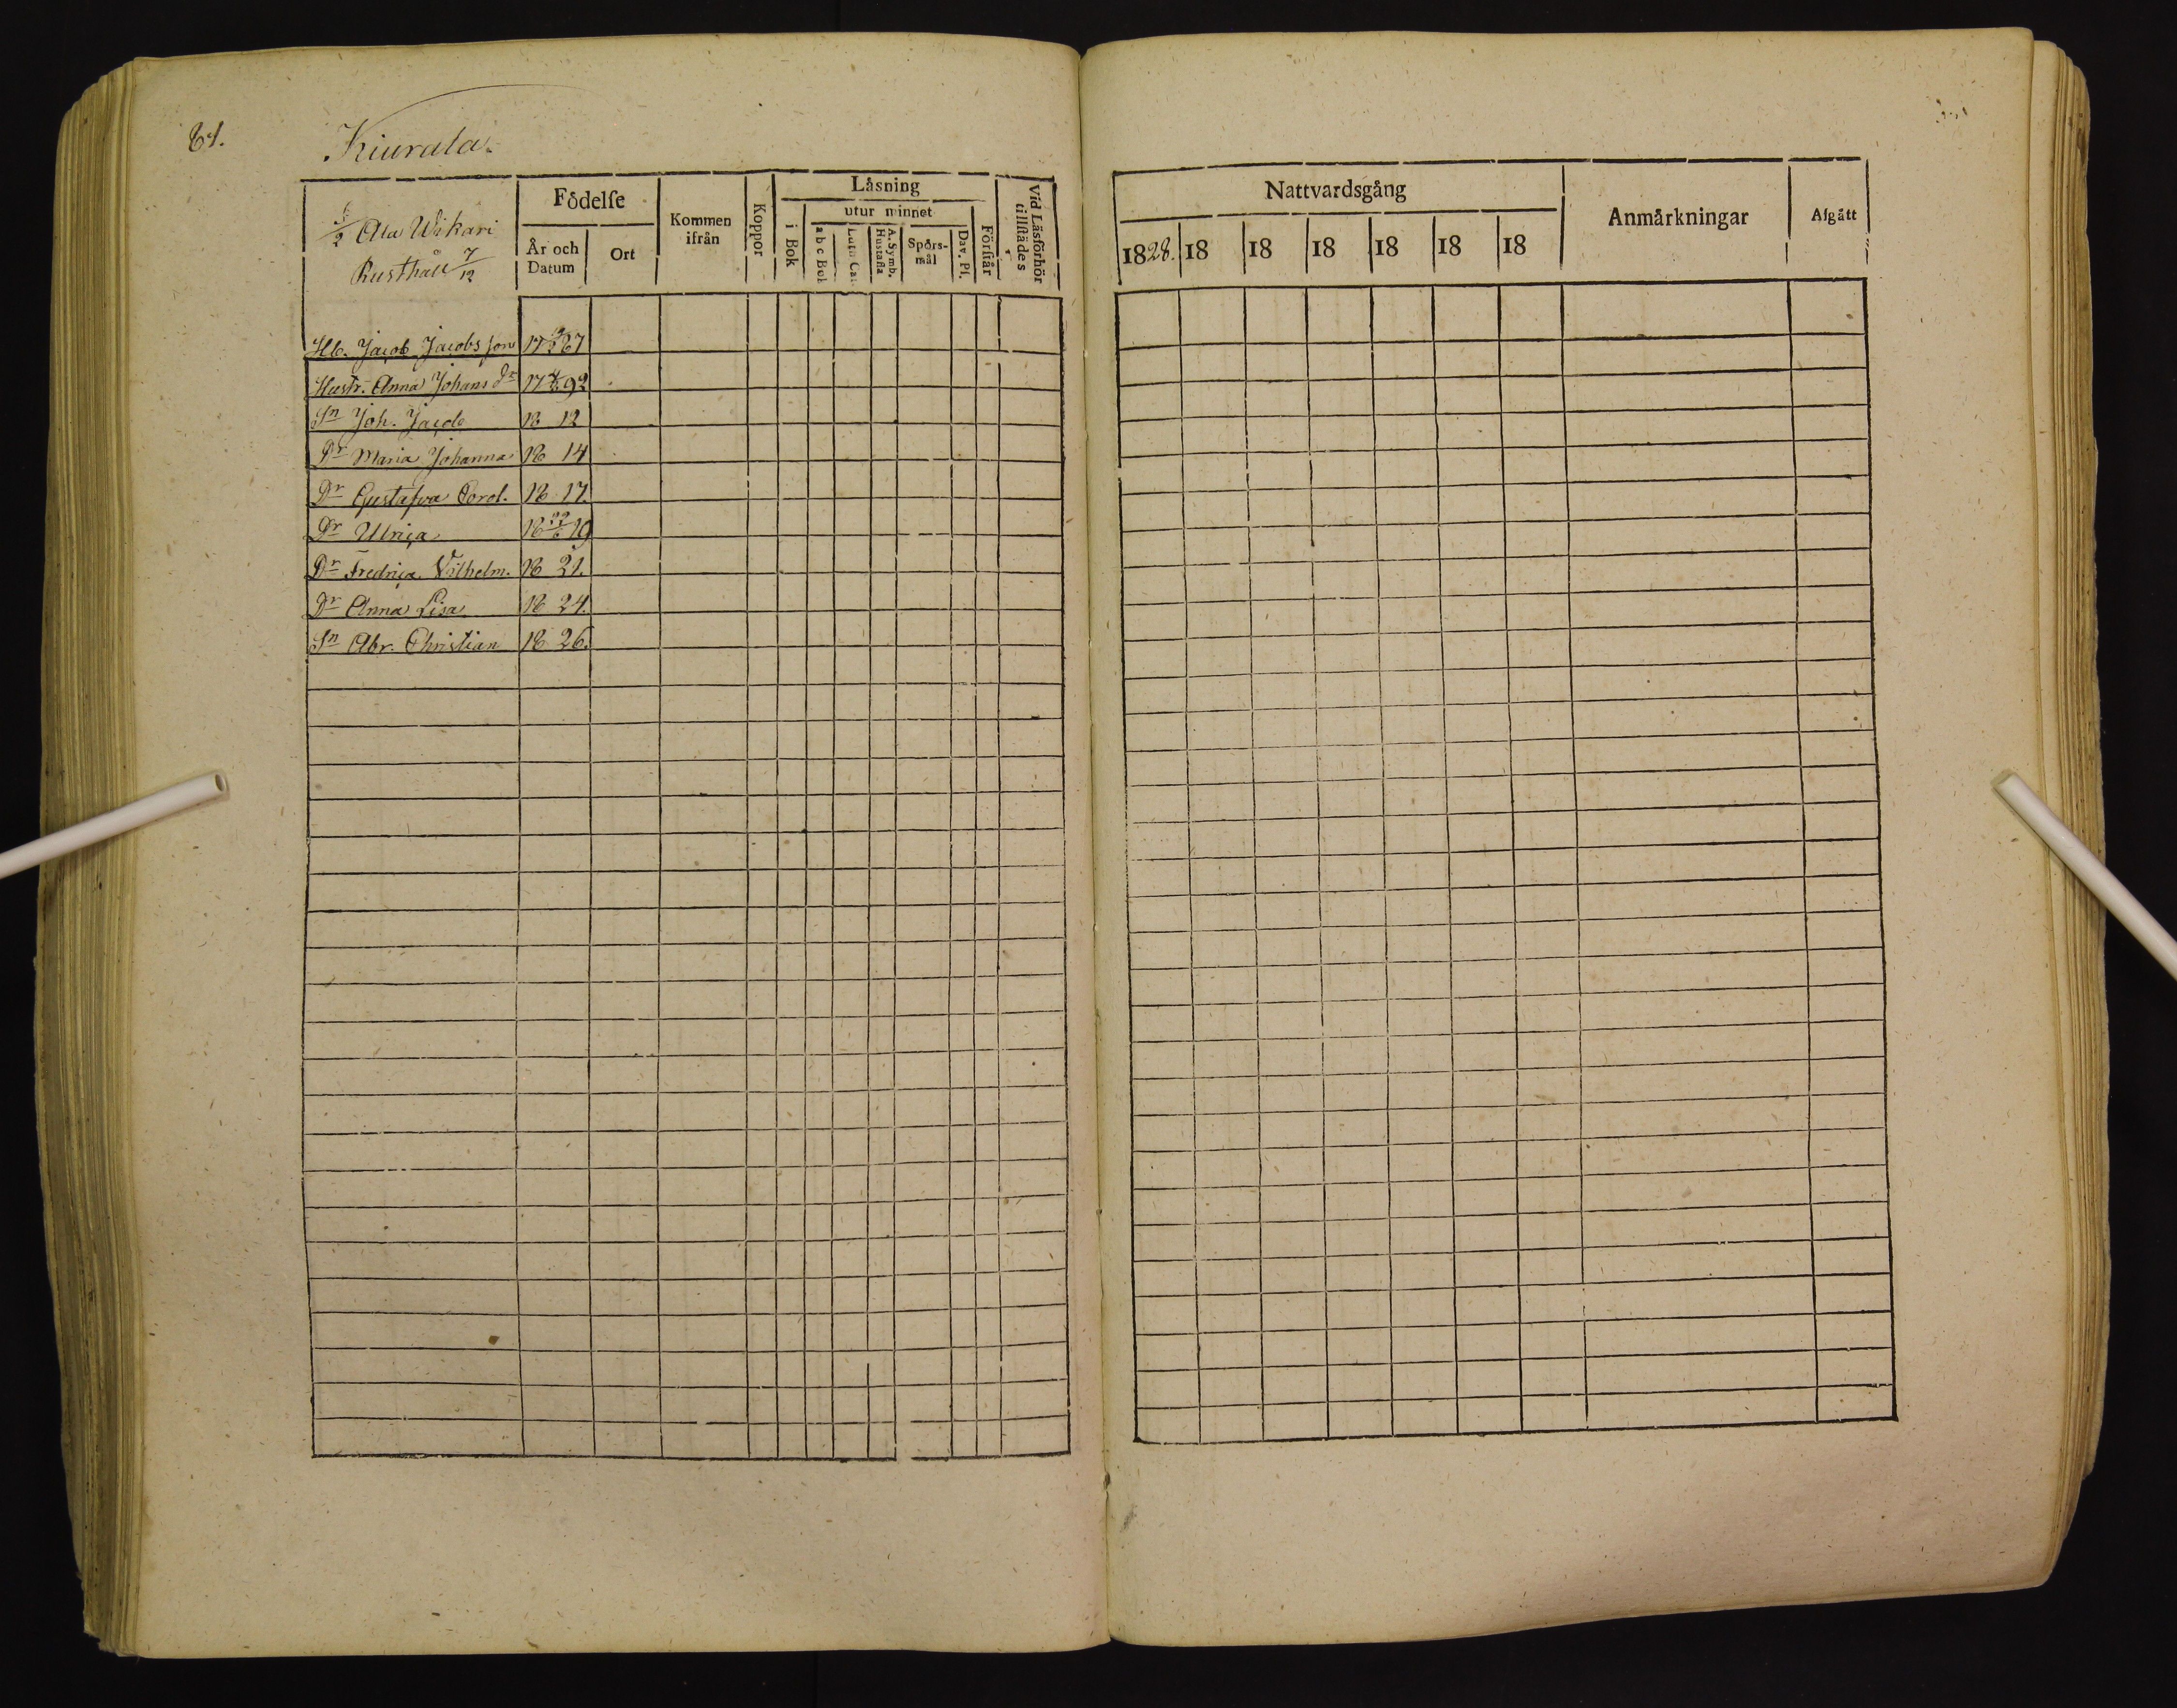 61.
Kiurala.
1/2 Ala Wikari
Rusthåll 7/12
Födelse
År och Datum
Ort
Kommen ifrån
Koppor
Låsning
i Bok
utur minnet
a b c Bok
Luth Cat
A. Symb. Hustafla
Spörsmål
Dav. Ps.
Förstår
Vid Låsförhör tillstädes
Hb. Jacob Jacobs son 17 87
Hustr. Anna Johans dr 17 92
Sn Joh. Jacob 18 12
Dr Maria Johanna 18 14
Dr Gustafva Carol. 18 17.
Dr Ulrica 18 19
Dr Fredrica Vilhelm. 18 21.
Dr Anna Lisa 18 24.
Sn Abr. Christian 18 26.
Nattvardsgång
1828. 18 18 18 18 18 18
Anmårkningar
Afgått